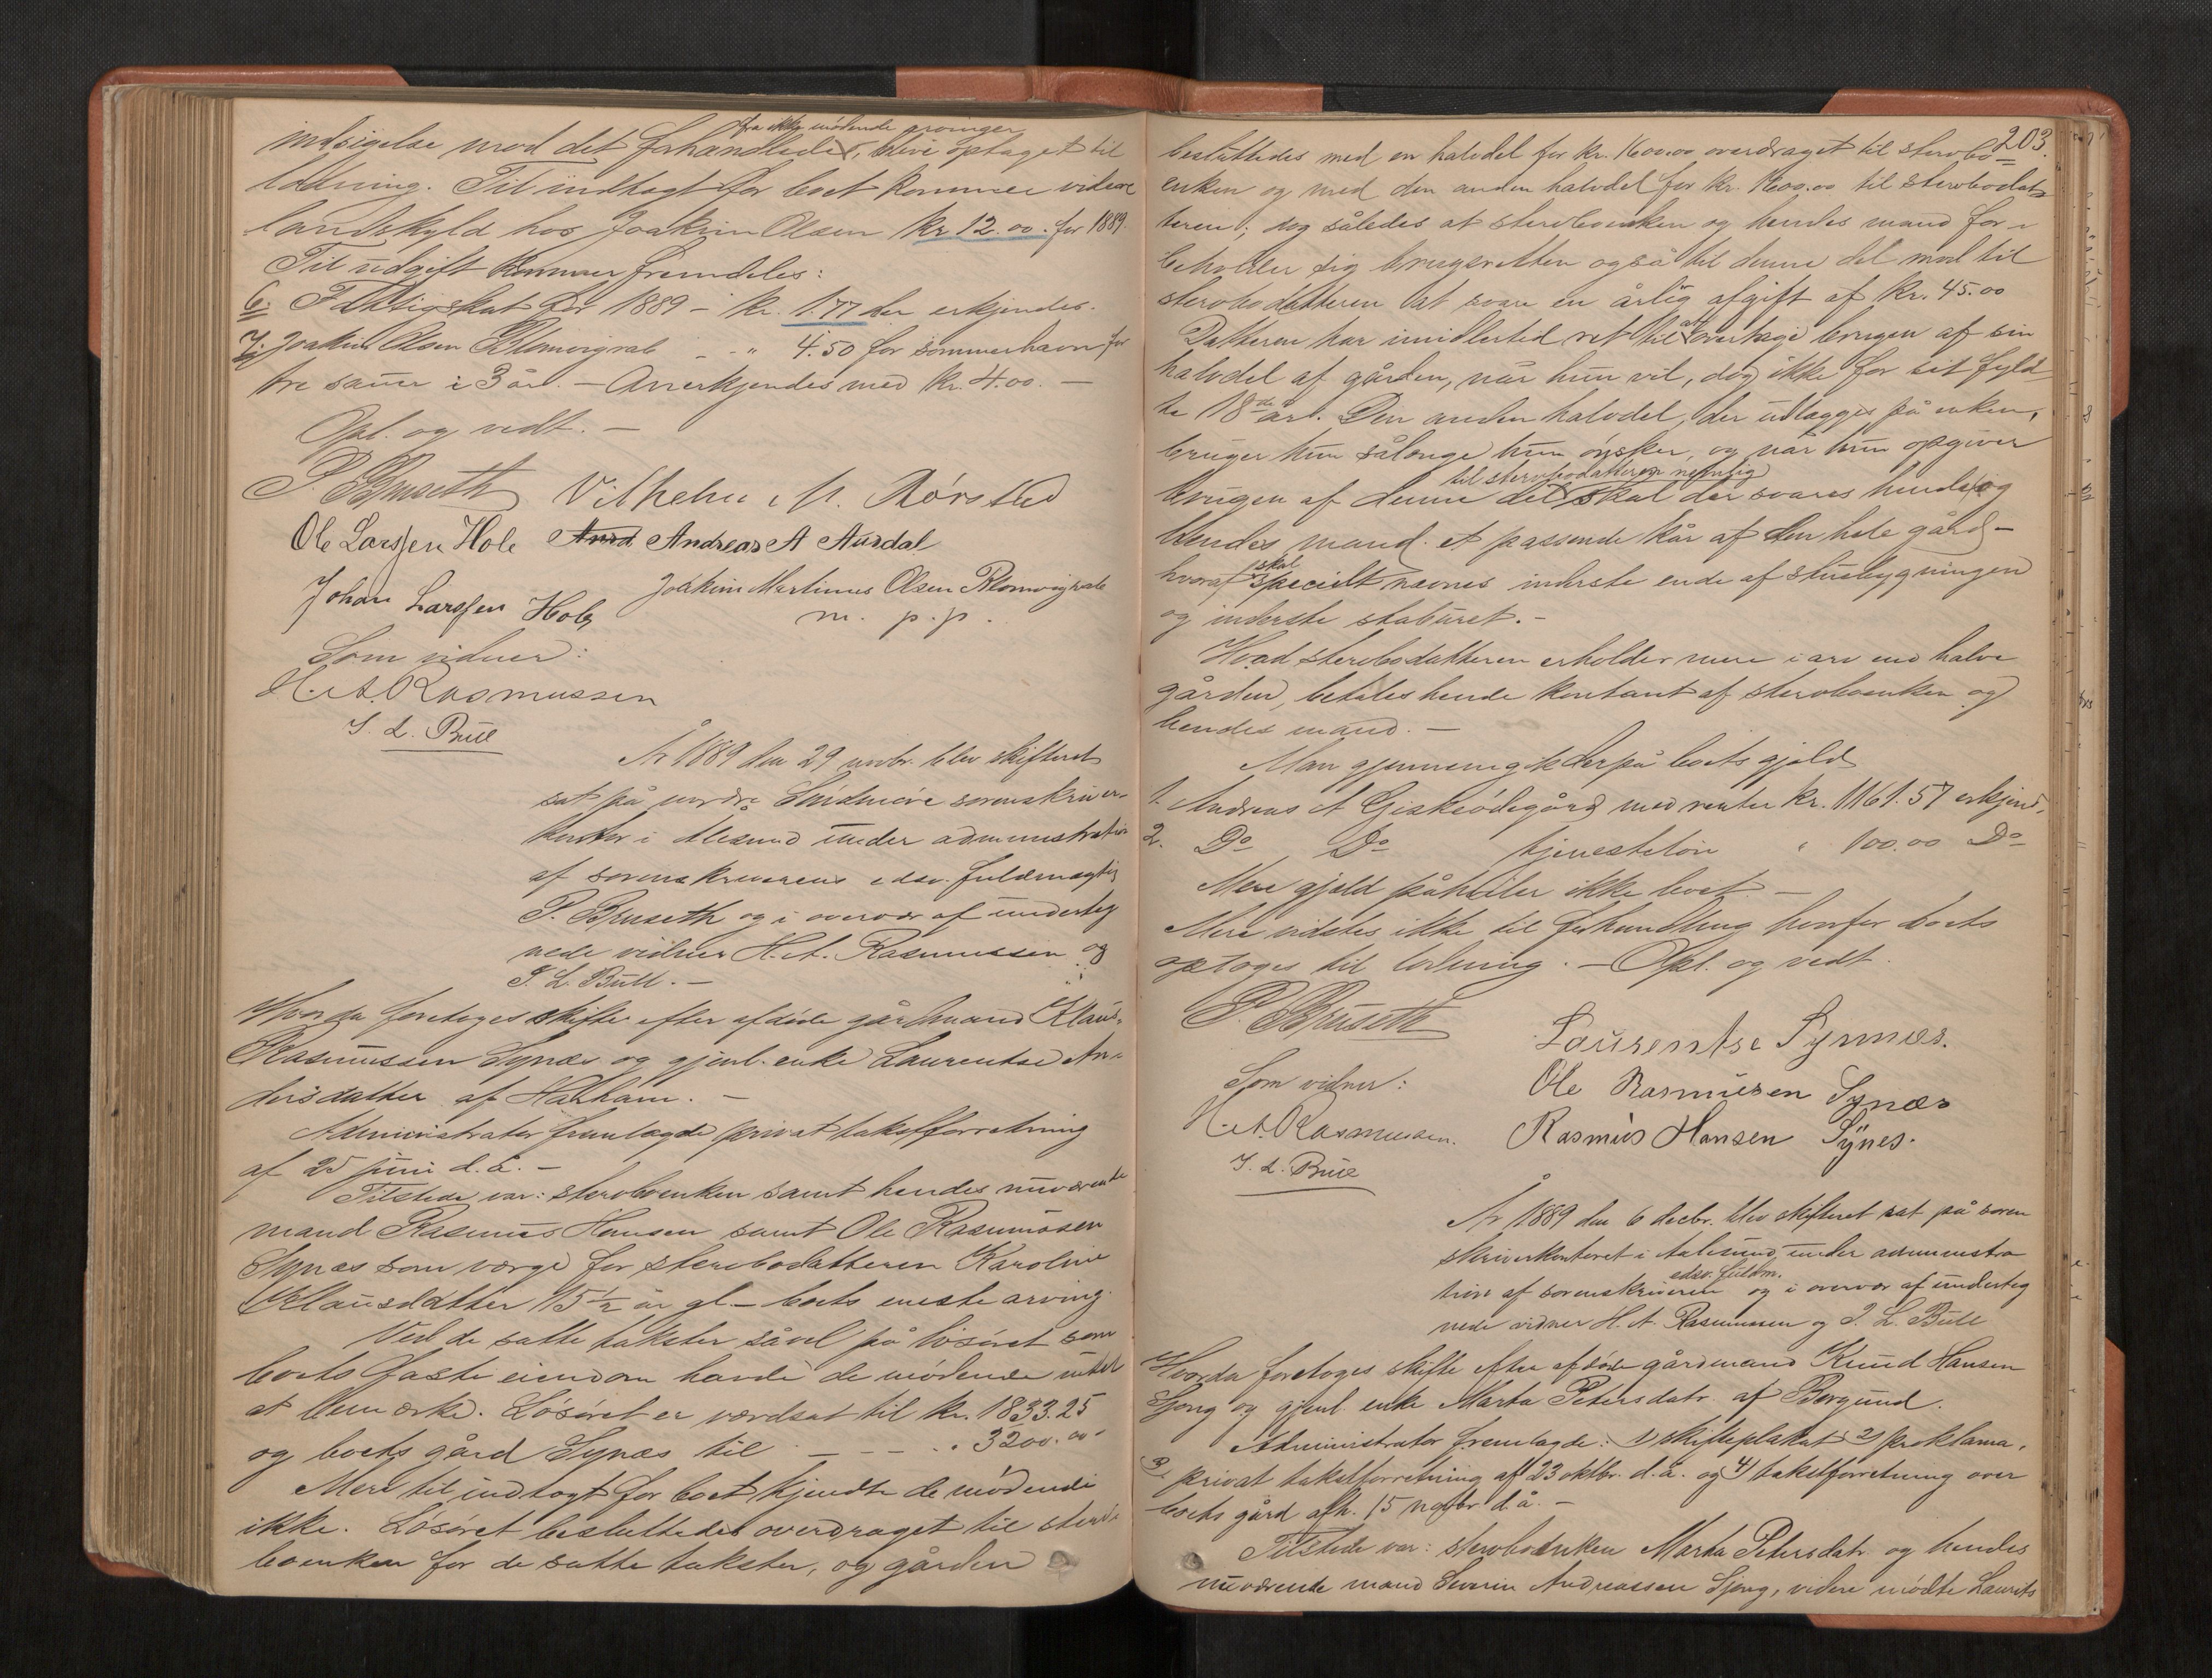 fra ikke mødende arvinger
indsigelse mod det forhandlede, blive optaget til
lodning. Til indtægt for boet kommer videre
landskyld hos Joakim Olsen kr. 12.00. for 1889.
Til udgift kommer fremdeles:
6. Fattigskat for 1889 – kr. 1.77 der erkjendes.
7. Joakim Olsen Blomvigrab – – " 4.50 for sommerhavn for
tre sauer i 3 år. – Anerkjendes med kr. 4.00. –
Opl. og vedt. –
P. Bruseth Vilhelm M. Rørsted
Ole Larssen Hole Andreas A Aursdal
Johan Larssen Hole Joakim Martinus Olsen Blomvigrab
m. p. p.
Som vidner:
H. A. Rasmussen
J. L. Bull
År 1889 den 29 novbr. blev skifteret
sat på nordre Søndmøre sorenskriver-
kontor i Ålesund under administration
af sorenskriverens edsv. fuldmægtig
P. Bruseth og i overvær af underteg
nede vidner H. A. Rasmussen og
J. L. Bull. –
Hvorda foretoges skifte efter afdøde gårdmand Klaus
Rasmussen Synæs og gjenl. enke Laurentse An-
dersdatter af Harham. –
Administrator fremlagde privat takstforretning
af 25 juni d. å. –
Tilstede var: sterboenken samt hendes nuværende
mand Rasmus Hansen samt Ole Rasmussen
Synæs som værge for sterbodatteren Karoline
Klausdatter 15½ år gl. – boets eneste arving.
Ved de satte takster såvel på løsøret som
boets faste eiendom havde de mødende intet
at bemærke. Løsøret er værdsat til kr. 1833.25
og boets gård Synæs til – – – " 3200.00
Mere til indtægt for boet kjendte de mødende
ikke. Løsøret besluttedes overdraget til ster-
boenken for de satte takster, og gården
203.
besluttedes med en halvdel for kr. 1600.00 overdraget til sterbo-
enken og med den anden halvdel for kr. 1600.00 til sterbodat-
teren; dog således at sterboenken og hendes mand for-
beholder sig brugsretten også til denne del mod til
sterbodatteren at svare en årlig afgift af kr. 45.00
Datteren har imidlertid ret til at overtage brugen af sin
halvdel af gården, når hun vil, dog ikke før sit fyld
te 18de år. Den anden halvdel, der udlægges på enken,
bruger hun sålænge hun ønsker, og når hun opgiver
til sterbodatteren nemlig
brugen af denne del skal der svares hende og
hendes mand et passende kår af den hele gård –
skal
hvoraf specielt nævnes inderste ende af stuebygningen
og inderste staburet. –
Hvad sterbodatteren erholder mere i arv end halve
gården, betales hende kontant af sterboenken og
hendes mand. –
Man gjennemgik derpå boets gjæld
1. Andreas A Giskeødegård med renter kr. 1161.57 erkjend.
2. Do Do tjenesteløn " 100.00 Do
Mere gjæld påhviler ikke boet –
Mere vidstes ikke til forhandling hvorfor boets
optoges til lodning. – Opl. og vedt.
P. Bruseth Laurentse Synnæs.
Som vidner: Ole Rasmusen Synæs
H. A. Rasmussen. Rasmus Hansen Synes.
J. L. Bull
År 1889 den 6 decbr. blev skifteret sat på soren
skriverkontoret i Aalesund, under administra
edsv. fuldm.
tion af sorenskriveren og i overvær af underteg
nede vidner H. A. Rasmussen og J. L. Bull
Hvorda foretoges skifte efter afdøde gårdmand Knud Hansen
Gjong og gjenl. enke Marta Petersdatr. af Borgund.
Administrator fremlagde: 1) skifteplakat 2) proklama,
3) privat takstforretning af 23 oktbr. d. å. og 4) takstforretning over
boets gård afh. 15 novbr d. å. –
Tilstede var: sterboenken Marta Petersdatr. og hendes
nuværende mand Severin Andreassen Gjong, videre mødte Laurits